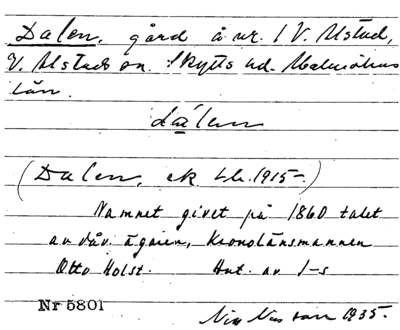 Dalen, gård å nr. 1 V. Alstad,
V. Alstads sn. Skytts hd. Malmöhus
län.
dálen
(Dalen, ek. bl. 1915–)
Namnet givet på 1860 talet
av dåv. ägaren, Kronolänsmannen
Otto Holst.
Nr 5801
1935.